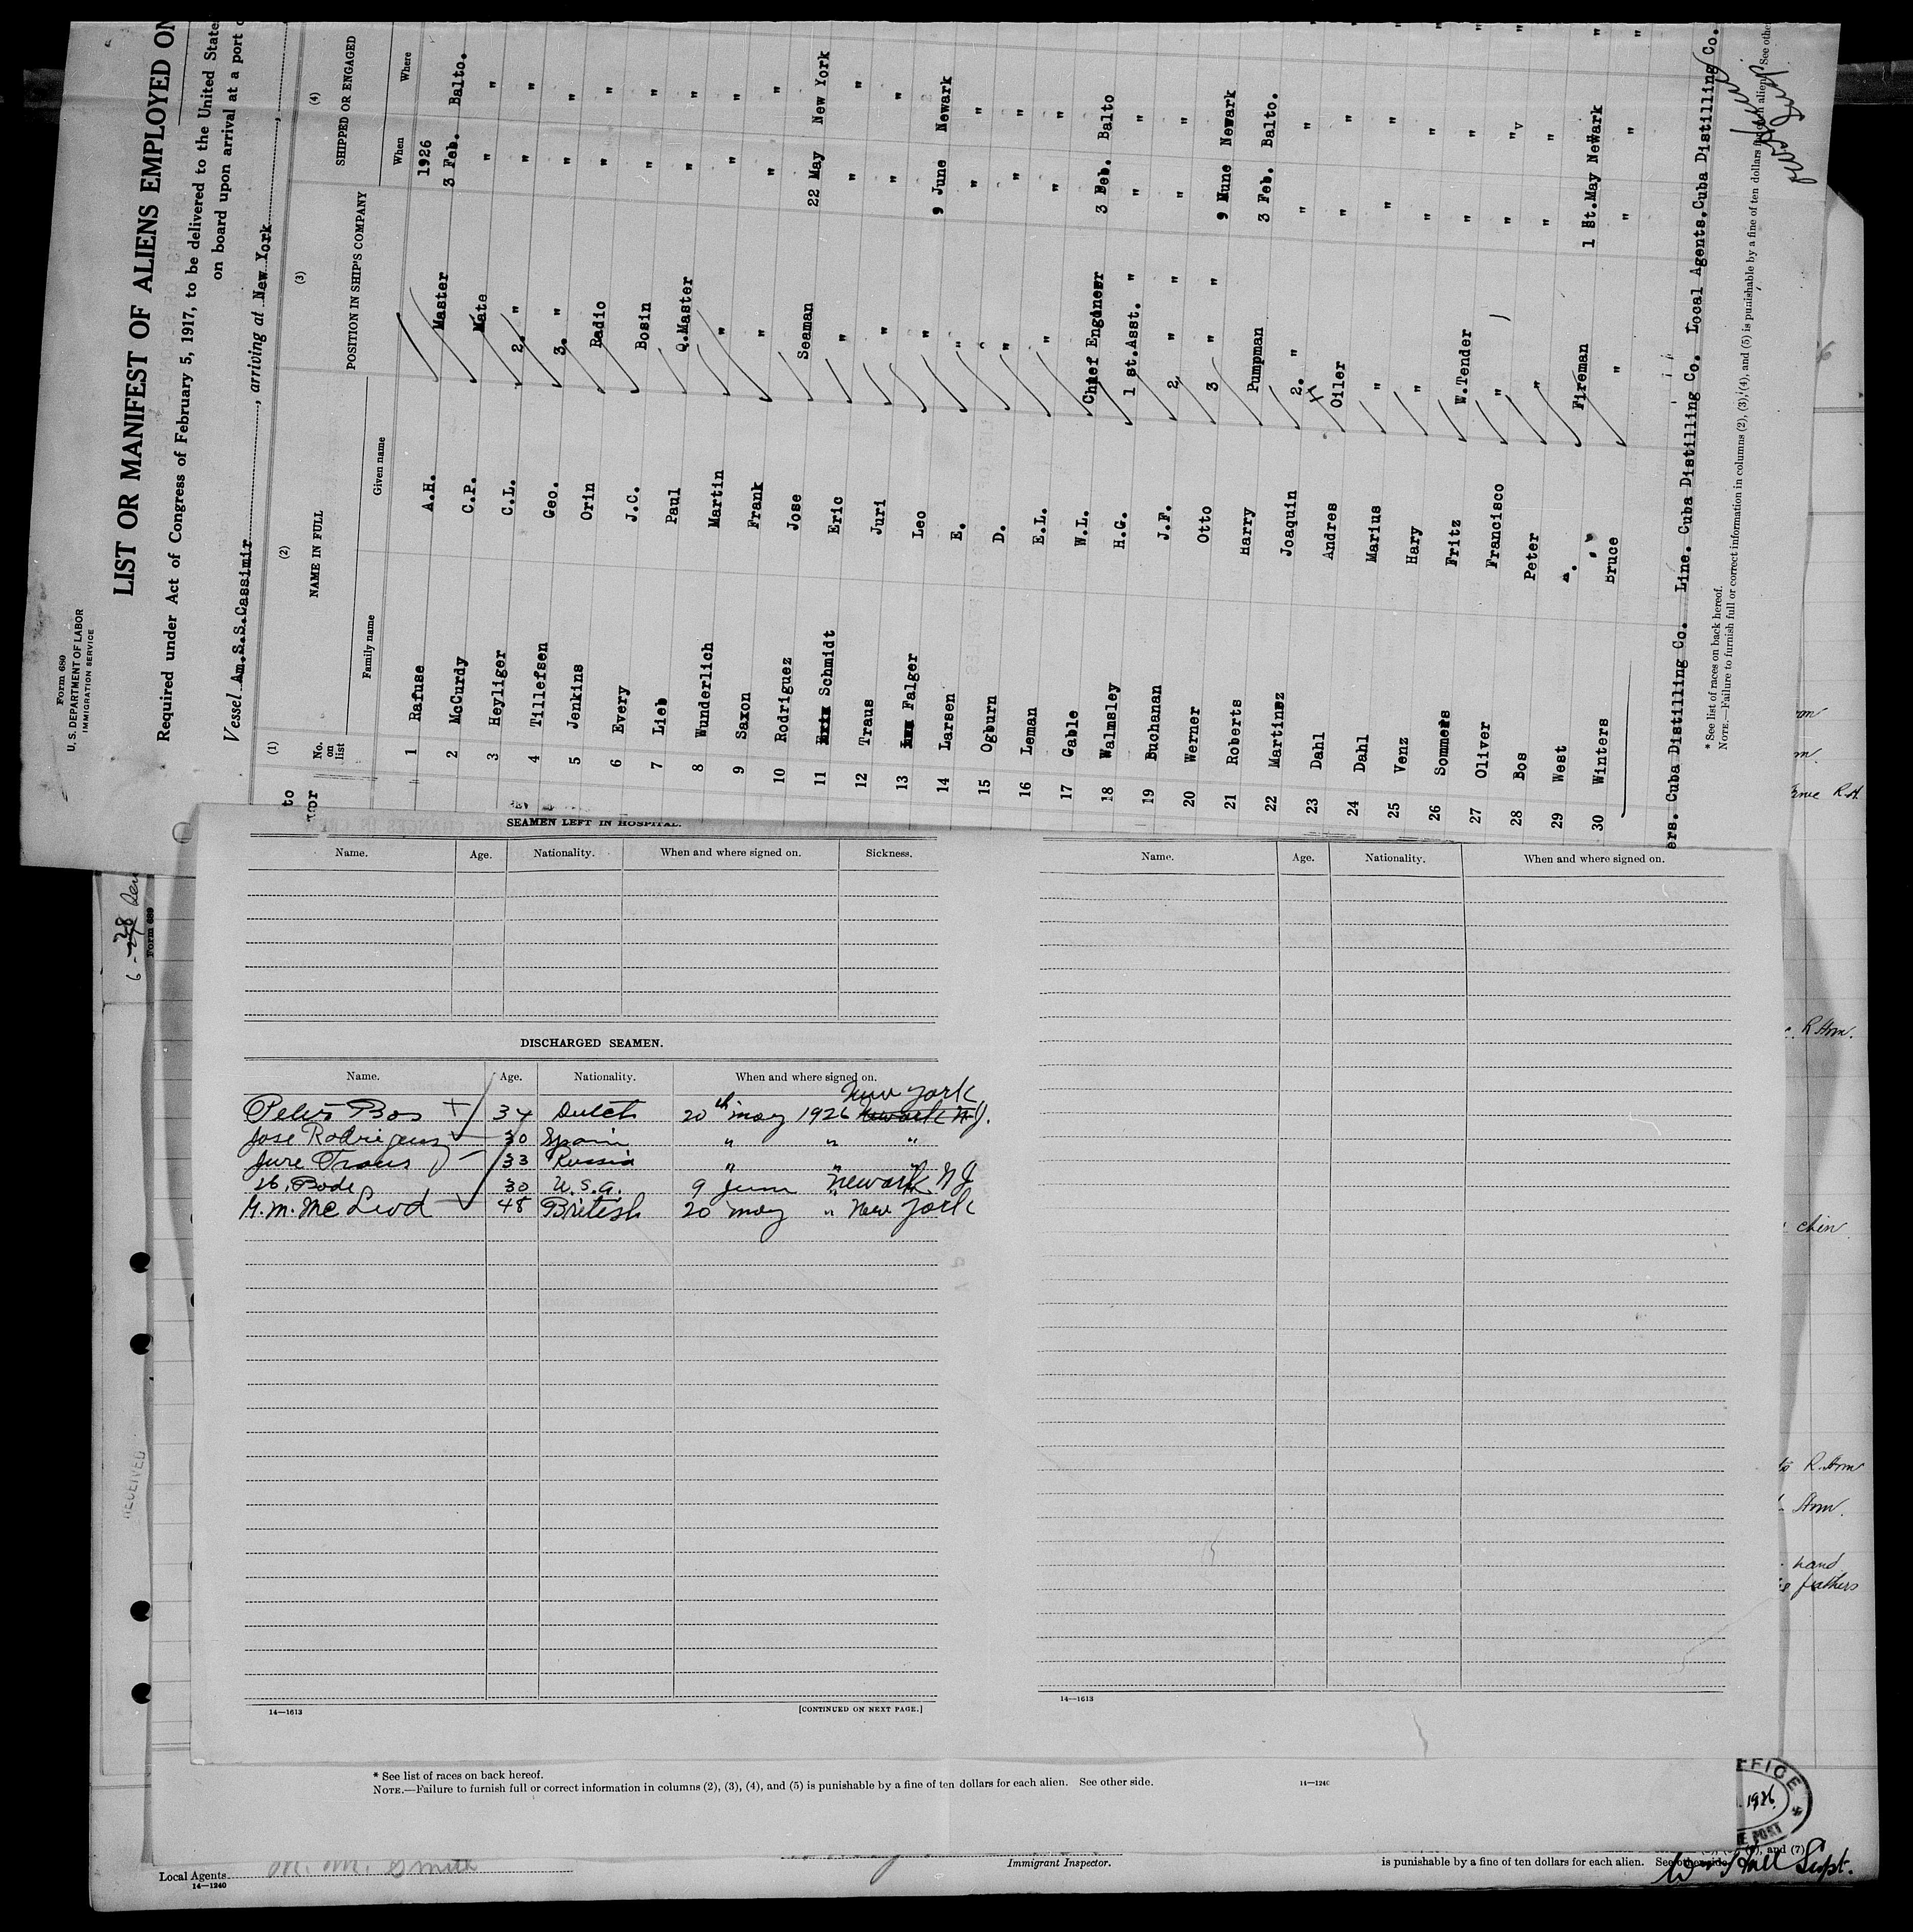 Form 680
U. S. DEPARTMENT OF LABOR
IMMIGRATION SERVICE
LIST OR MANIFEST OF ALIENS EMPLOYED ON
Required under Act of Congress of February 5, 1917, to be delivered to the United State
on board upon arrival at a port
Vessel Am.S.S.Cassimir, arriving at New York
(1) (2) (3) (4)
No. on list NAME IN FULL POSITION IN SHIP'S COMPANY SHIPPED OR ENGAGED
Family name Given name When Where
1926
1 Rafuse A.H. Master 3 Feb. Balto.
2 McCurdy C.P. Mate " "
3 Heyliger C.L. 2. " " "
4 Tillefsen Geo. 3. " " "
5 Jenkins Orin Radio " "
6 Every J.C. Bosin " "
7 Lieb Paul Q.Master " "
8 Wunderlich Martin " " "
9 Saxon Frank " " "
10 Rodriguez Jose Seaman 22 May New York
11 Schmidt Eric " " "
12 Traus Juri " " "
13 Falger Leo " 9 June Newark
14 Larsen E. " " "
15 Ogburn D. " " "
16 Leman E.L. " " "
17 Gable W.L. Chief Engineer 3 Feb. Balto
18 Walmsley H.G. 1 st.Asst. " " "
19 Buchanan J.F. 2 " " " "
20 Werner Otto 3 " " 9 Mune Newark
21 Roberts Harry Pumpman 3 Feb. Balto.
22 Martinez Joaquin 2. " " "
23 Dahl Andres Oiler " "
24 Dahl Marius " " "
25 Venz Hary " " "
26 Sommers Fritz W.Tender " "
27 Oliver Francisco " " "
28 Bos Peter " " "
29 West Fireman 1 St.May Newark
30 Winters Bruce " " "
ers. Cuba Distilling Co. Line. Cuba Distilling Co. Local Agents.Cuba Distilling Co.
* See list of races on back hereof.
NOTE.—Failure to furnish full or correct information in columns (2), (3), (4), and (5) is punishable by a fine of ten dollars for each alien. See othe
to
tor
SEAMEN LEFT IN HOSPITAL.
Name. Age. Nationality. When and where signed on. Sickness.
Name. Age. Nationality. When and where signed on.
DISCHARGED SEAMEN.
Name. Age. Nationality. When and where signed on.
New York
Peter Bos 34 Dutch 20th may 1926 Newark N.J.
Jose Rodriguez 30 Spain " " "
Jure Traus 33 Russia " " "
Bode 30 U.S.A. 9 June " Newark N J
McLeod 48 British 20 may " New York
14—1613 [CONTINUED ON NEXT PAGE.]
14—1613
Form 689
RECEIVED
R.H.
R Arm.
chin
R. Arm
Arm.
hand
feathers
* See list of races on back hereof.
NOTE.—Failure to furnish full or correct information in columns (2), (3), (4), and (5) is punishable by a fine of ten dollars for each alien. See other side. 14—1240
FFICE
1926
POST
Local Agents M. M. Smith
14—1240
Immigrant Inspector.
and (7)
is punishable by a fine of ten dollars for each alien. See other side.
Supt.